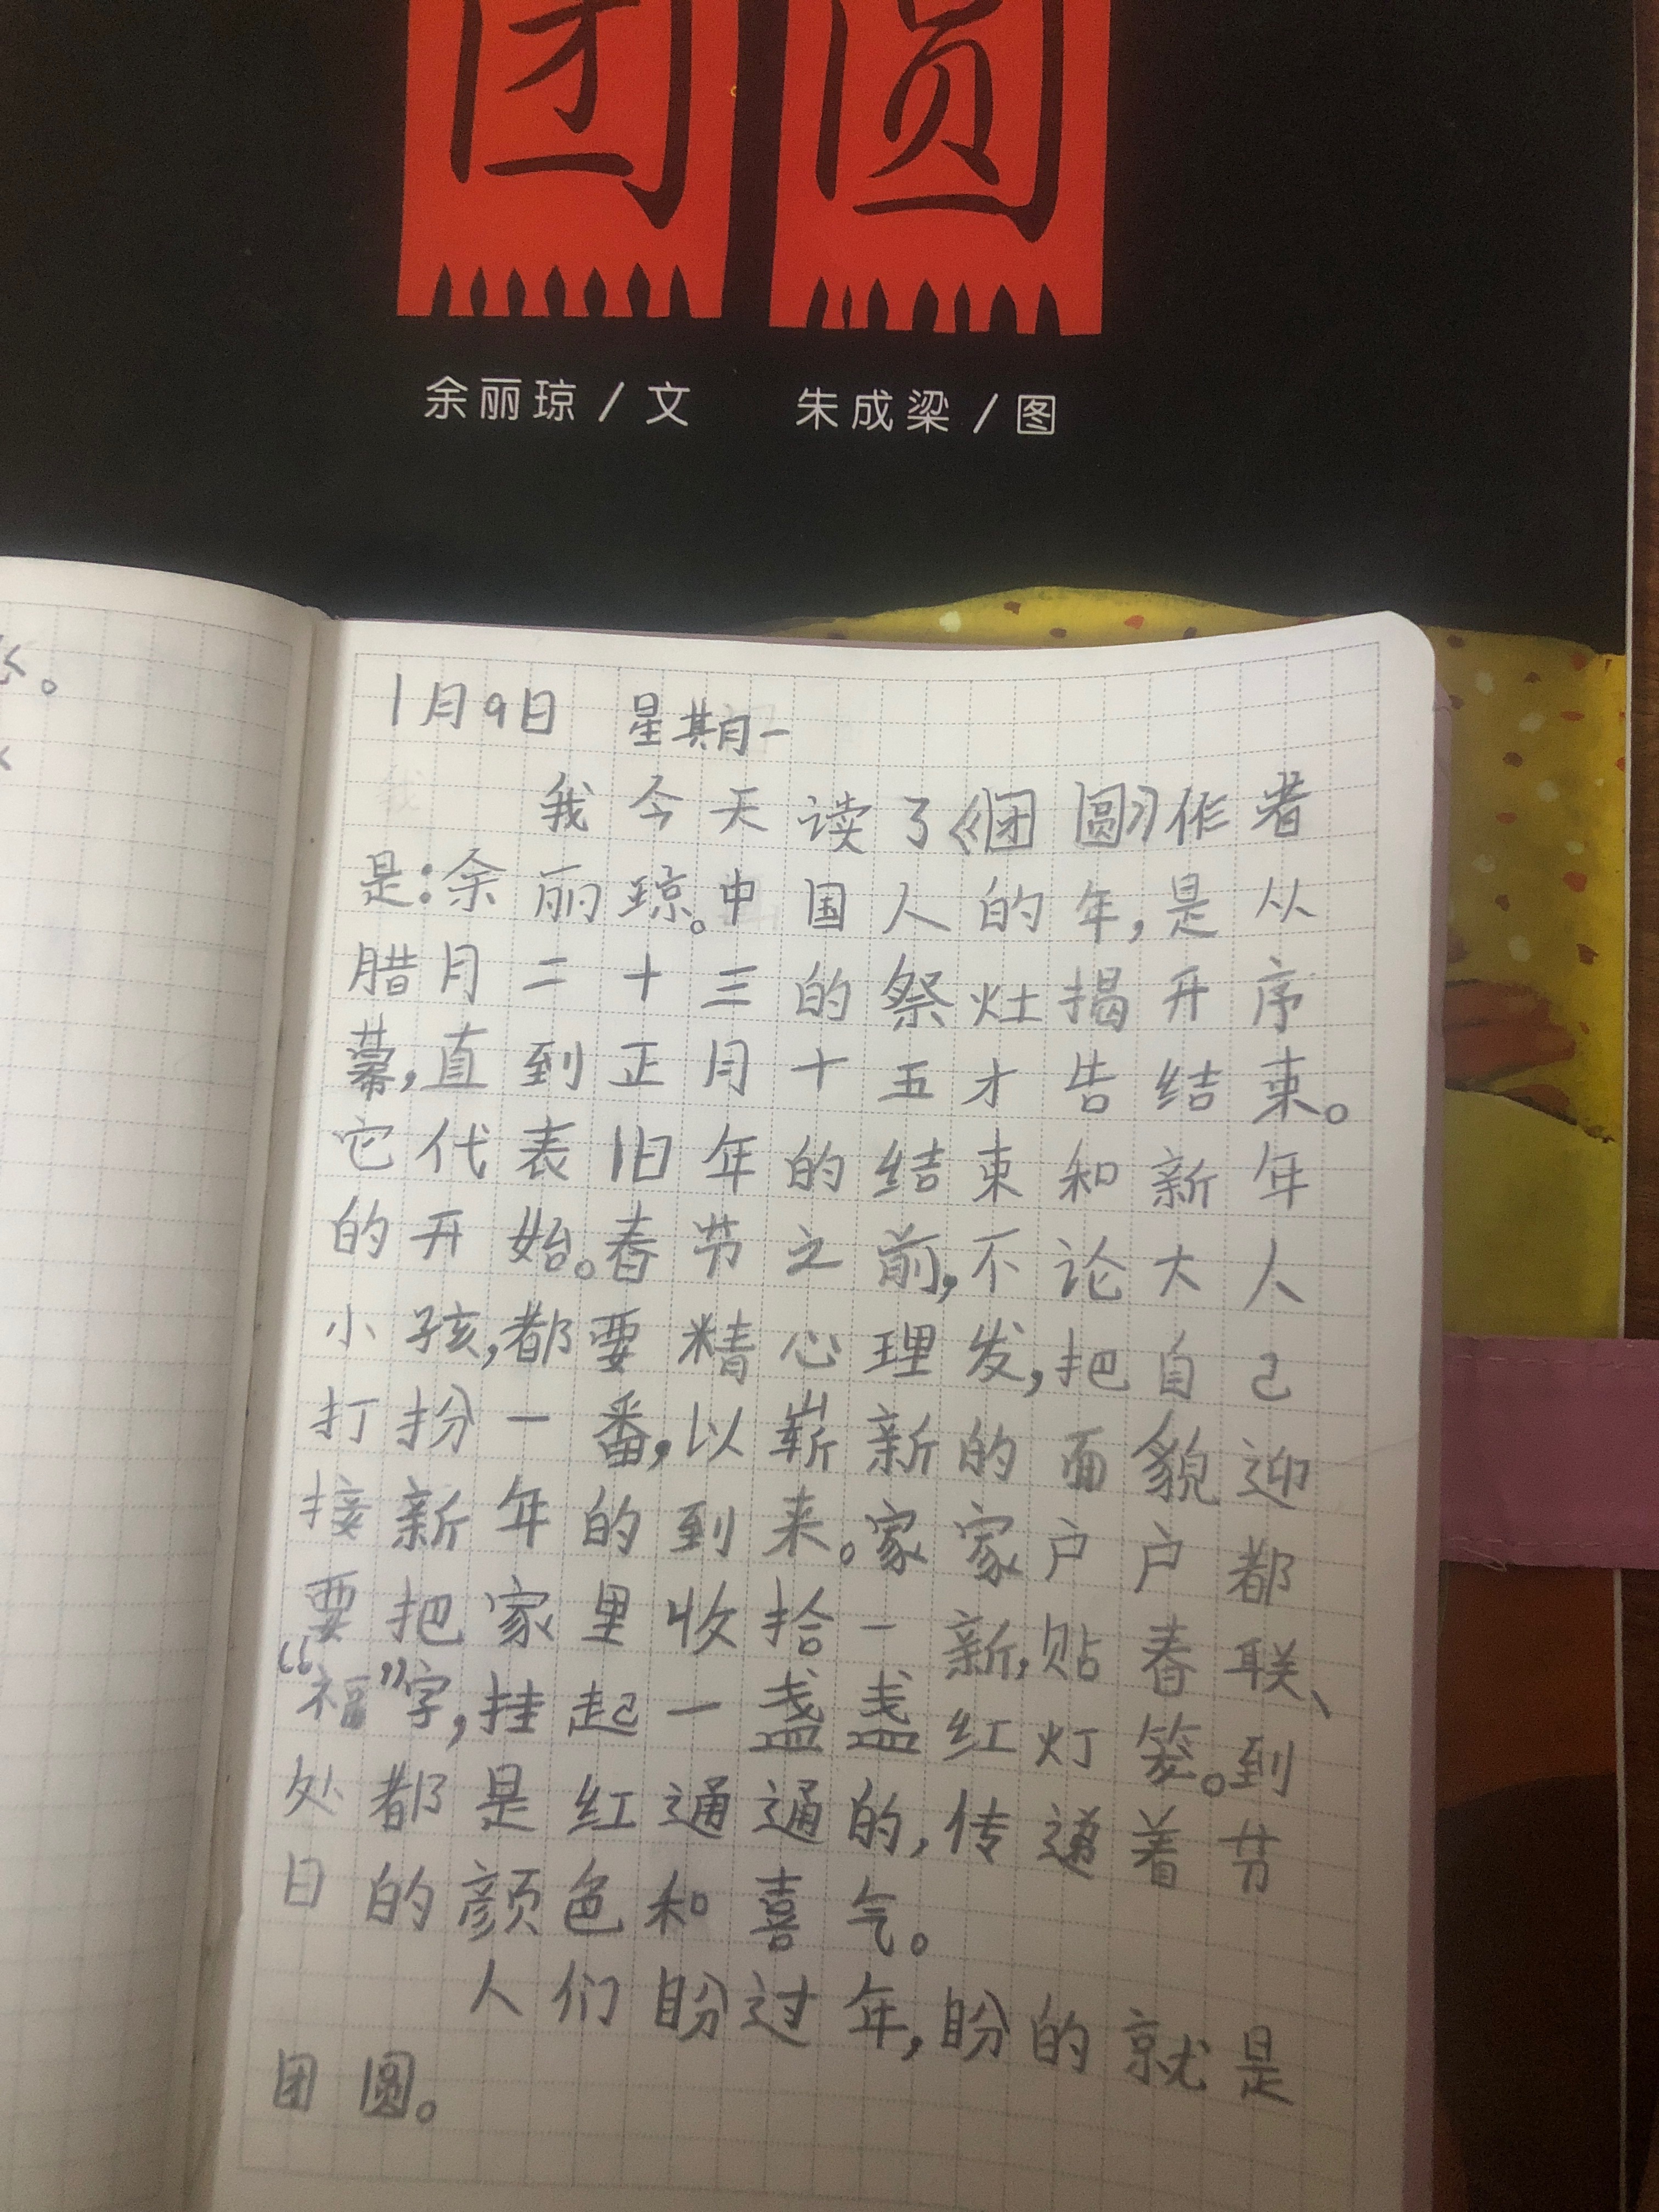 团圆
余丽琼/文 朱成梁/图
1月9日 星期一
我今天读了《团圆》作者
是:余丽琼。中国人的年,是从
腊月二十三的祭灶揭开序
幕,直到正月十五才告结束。
它代表旧年的结束和新年
的开始。春节之前,不论大人
小孩,都要精心理发,把自己
打扮一番,以崭新的面貌迎
接新年的到来。家家户户都
要把家里收拾一新,贴春联、
“福”字,挂起一盏盏红灯笼。到
处都是红通通的,传递着节
日的颜色和喜气。
人们盼过年,盼的就是
团圆。